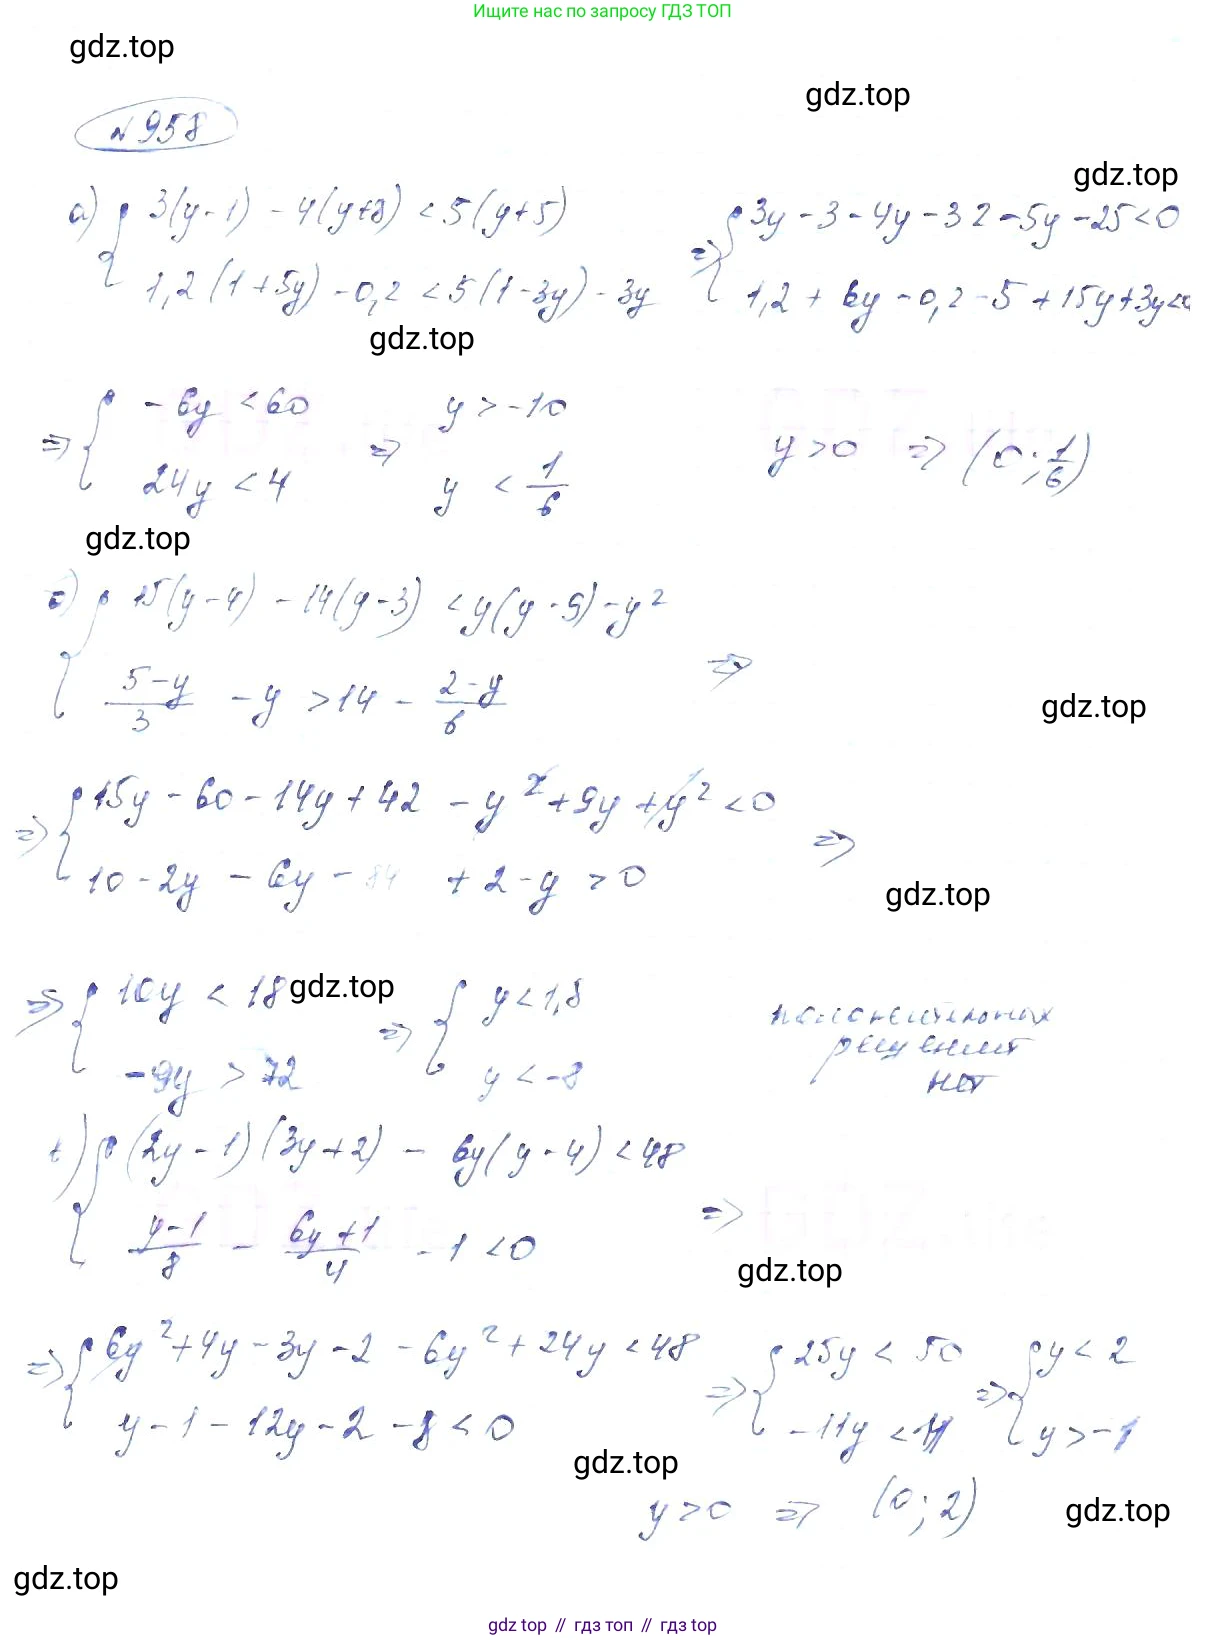 Ищите нас по запросу ГДЗ ТОП
gdz.top
gdz.top
№958
gdz.top
а) { 3(y-1) - 4(y+8) < 5(y+5) => { 3y - 3 - 4y - 32 - 5y - 25 < 0
1,2(1+5y) - 0,2 < 5(1-3y) - 3y 1,2 + 6y - 0,2 - 5 + 15y + 3y <
gdz.top
=> { -6y < 60 => y > -10
24y < 4 y < 1/6 y > 0 => (0; 1/6)
gdz.top
б) { 15(y-4) - 14(y-3) < y(y-9) - y²
(5-y)/3 - y > 14 - (2-y)/6 =>
gdz.top
=> { 15y - 60 - 14y + 42 - y² + 9y + y² < 0
10 - 2y - 6y - 84 + 2 - y > 0 =>
gdz.top
=> { 10y < 18 gdz.top => { y < 1,8
-9y > 72 y < -8
положительных
решений
нет
{ (2y-1)(3y+2) - 6y(y-4) < 48
(y-1)/8 - (6y+1)/4 - 1 < 0 =>
gdz.top
=> { 6y² + 4y - 3y - 2 - 6y² + 24y < 48 => { 25y < 50 => { y < 2
y - 1 - 12y - 2 - 8 < 0 -11y < 11 y > -1
gdz.top
y > 0 => (0; 2)
gdz.top
gdz.top
gdz top // гдз топ // gdz top